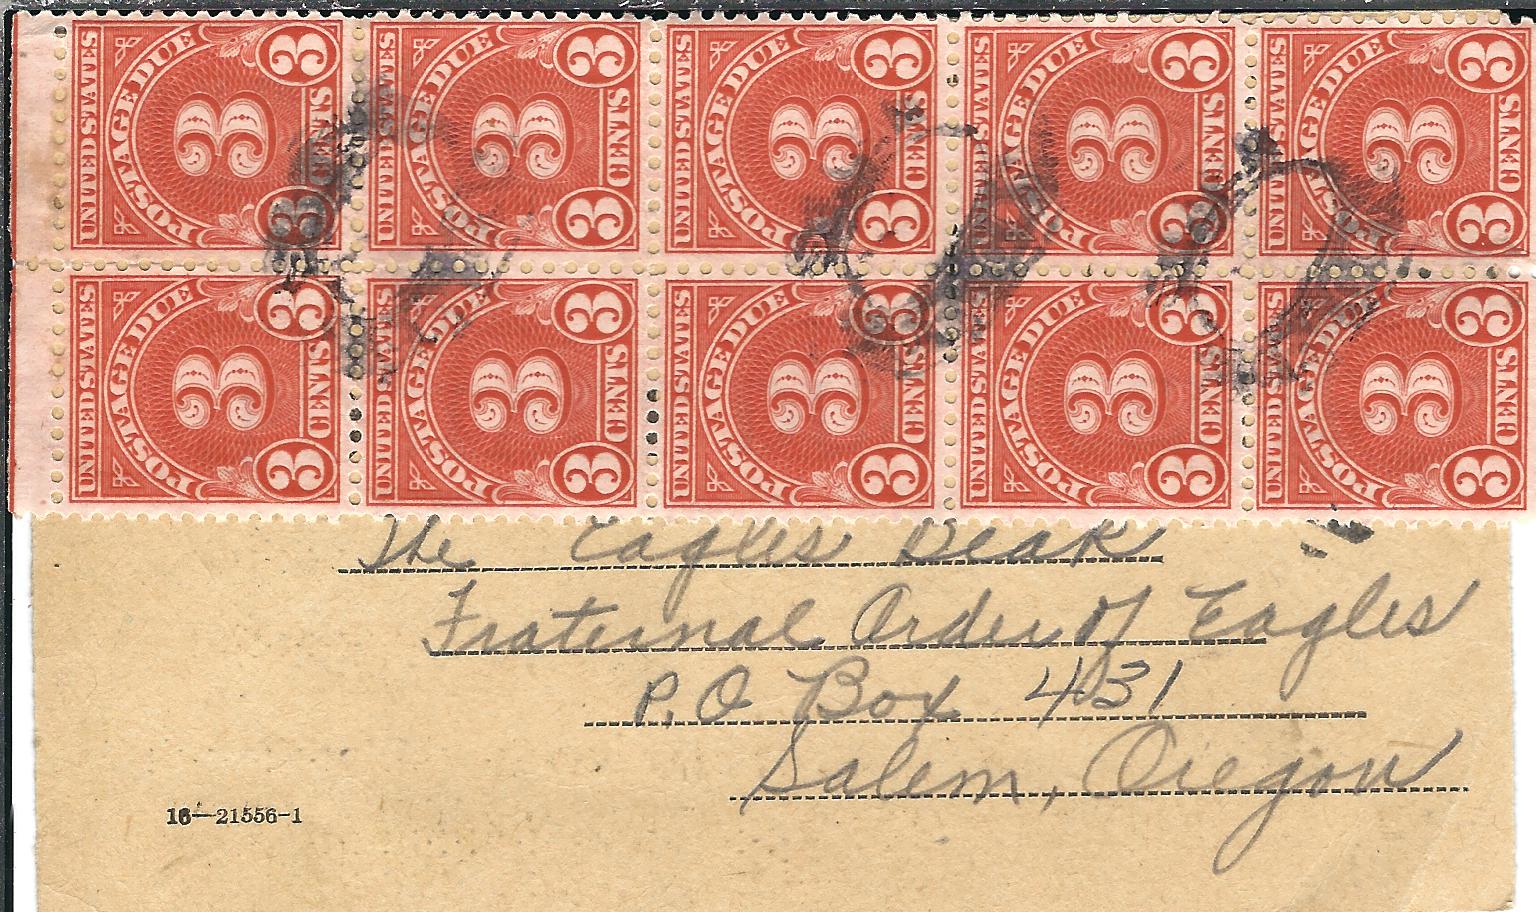 UNITED STATES POSTAGE DUE 3 CENTS 3 3
UNITED STATES POSTAGE DUE 3 CENTS 3 3
UNITED STATES POSTAGE DUE 3 CENTS 3 3
UNITED STATES POSTAGE DUE 3 CENTS 3 3
UNITED STATES POSTAGE DUE 3 CENTS 3 3
UNITED STATES POSTAGE DUE 3 CENTS 3 3
UNITED STATES POSTAGE DUE 3 CENTS 3 3
UNITED STATES POSTAGE DUE 3 CENTS 3 3
UNITED STATES POSTAGE DUE 3 CENTS 3 3
UNITED STATES POSTAGE DUE 3 CENTS 3 3
The Eagles Beak
Fraternal Order of Eagles
P.O Box 431
Salem, Oregon
16—21556-1